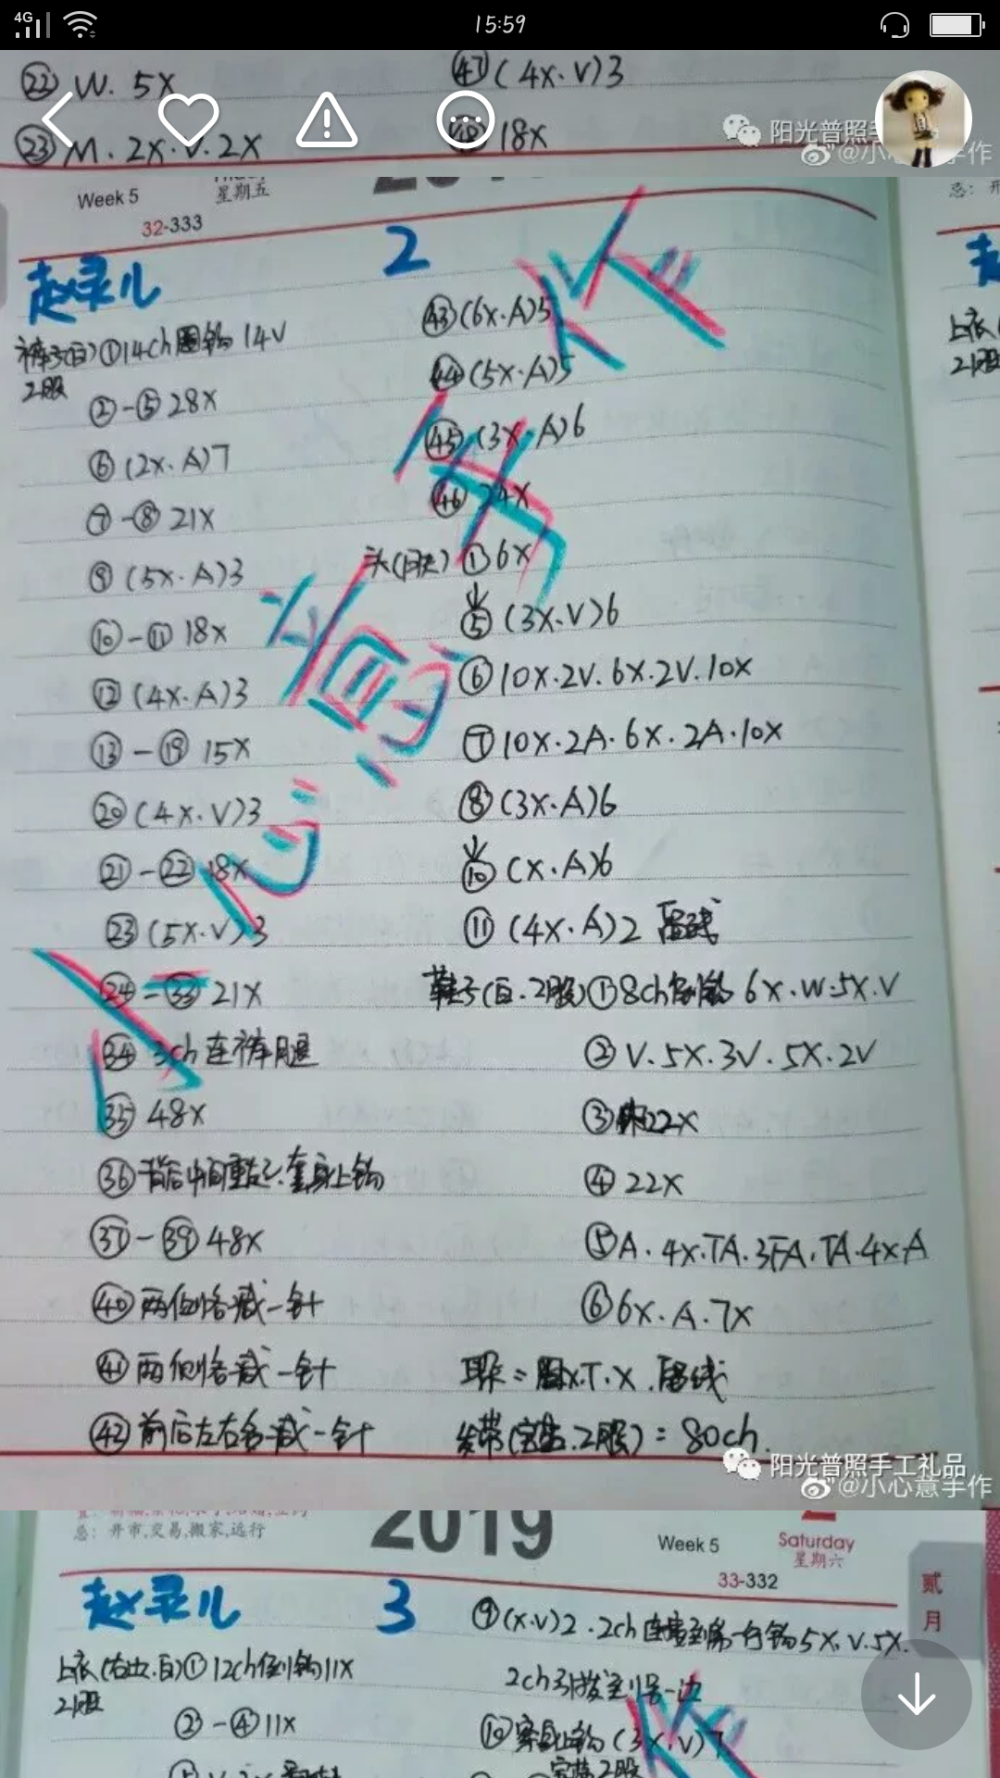 4G 15:59
㉒ W. 5X
㊼ (4X.V)3
㉓ M. 2X.V.2X
㊽ 18X
阳光普照手
@小心意手作
Week 5
星期五
32-333
赵灵儿 2
裤子(白)①14ch圈钩 14V
2股
②-⑤ 28X
⑥ (2X.A)7
⑦-⑧ 21X
⑨ (5X.A)3
⑩-⑪ 18X
⑫ (4X.A)3
⑬-⑲ 15X
⑳ (4X.V)3
㉑-㉒ 18X
㉓ (5X.V)3
㉔-㉝ 21X
㉞ 3ch连裤腿
㉟ 48X
㊱ 背后中间重起.套身上钩
㊲-㊴ 48X
㊵ 两侧各减一针
㊶ 两侧各减一针
㊷ 前后左右各减一针
㊸ (6X.A)5
㊹ (5X.A)5
㊺ (3X.A)6
㊻ 24X
头(肤) ① 6X
↓
⑤ (3X.V)6
⑥ 10X.2V.6X.2V.10X
⑦ 10X.2A.6X.2A.10X
⑧ (3X.A)6
↓
⑩ (X.A)6
⑪ (4X.A)2 留线
鞋子(白.2股)①8ch 6X.W.5X.V
② V.5X.3V.5X.2V
③ 22X
④ 22X
⑤ A.4X.TA.3FA.TA.4X.A
⑥ 6X.A.7X
耳朵= X.T.X.留线
发带(宝蓝.2股)=80ch.
小心意手作
阳光普照手工礼品
@小心意手作
忌: 开市,交易,搬家,远行
2019
Week 5
Saturday
星期六
33-332
贰
月
赵灵儿 3
上衣(右边.白)①12ch倒钩11X
2股
②-④11X
⑨(X.V)2.2ch 5X.V.5X.
2ch引拔至另一边
⑩套身上钩(3X.V)7
宝蓝2股